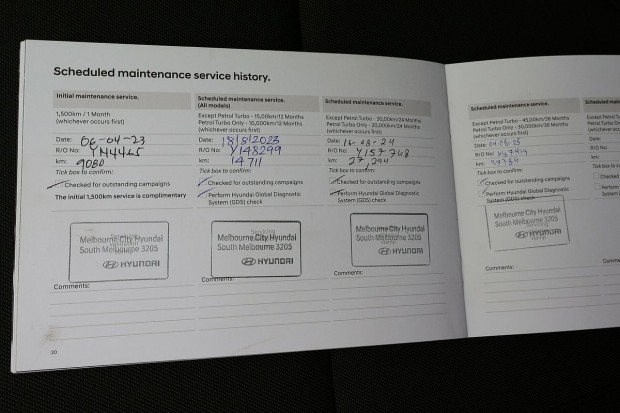 Scheduled maintenance service history.
Initial maintenance service.
1,500km / 1 Month
(whichever occurs first)
Date: 06-04-23
R/O No: YN4465
km: 9080
Tick box to confirm:
Checked for outstanding campaigns
The initial 1,500km service is complimentary
Melbourne City Hyundai
South Melbourne 3205
HYUNDAI
Comments:
Scheduled maintenance service.
(All models)
Except Petrol Turbo - 15,000km/12 Months
Petrol Turbo Only - 10,000km/12 Months
(whichever occurs first)
Date: 18/8/2023
R/O No: Y148299
km: 14711
Tick box to confirm:
Checked for outstanding campaigns
Perform Hyundai Global Diagnostic
System (GDS) check
Melbourne City Hyundai
South Melbourne 3205
HYUNDAI
Comments:
Scheduled maintenance service.
Except Petrol Turbo - 30,000km/24 Months
Petrol Turbo Only - 20,000km/24 Months
(whichever occurs first)
Date: 16-08-24
R/O No: Y157248
km: 27,294
Tick box to confirm:
Checked for outstanding campaigns
Perform Hyundai Global Diagnostic
System (GDS) check
Melbourne City Hyundai
South Melbourne 3205
HYUNDAI
Comments:
20
Scheduled maintenance service.
Except Petrol Turbo - 45,000km/36 Months
Petrol Turbo Only - 30,000km/36 Months
(whichever occurs first)
Date:
R/O No:
km:
Tick box to confirm:
Checked for outstanding campaigns
Perform Hyundai Global Diagnostic
System (GDS) check
Melbourne City Hyundai
South Melbourne 3205
HYUNDAI
Comments:
Scheduled
Except
Petrol
Date:
R/O No:
km:
Tick box
Checked
Perform
System